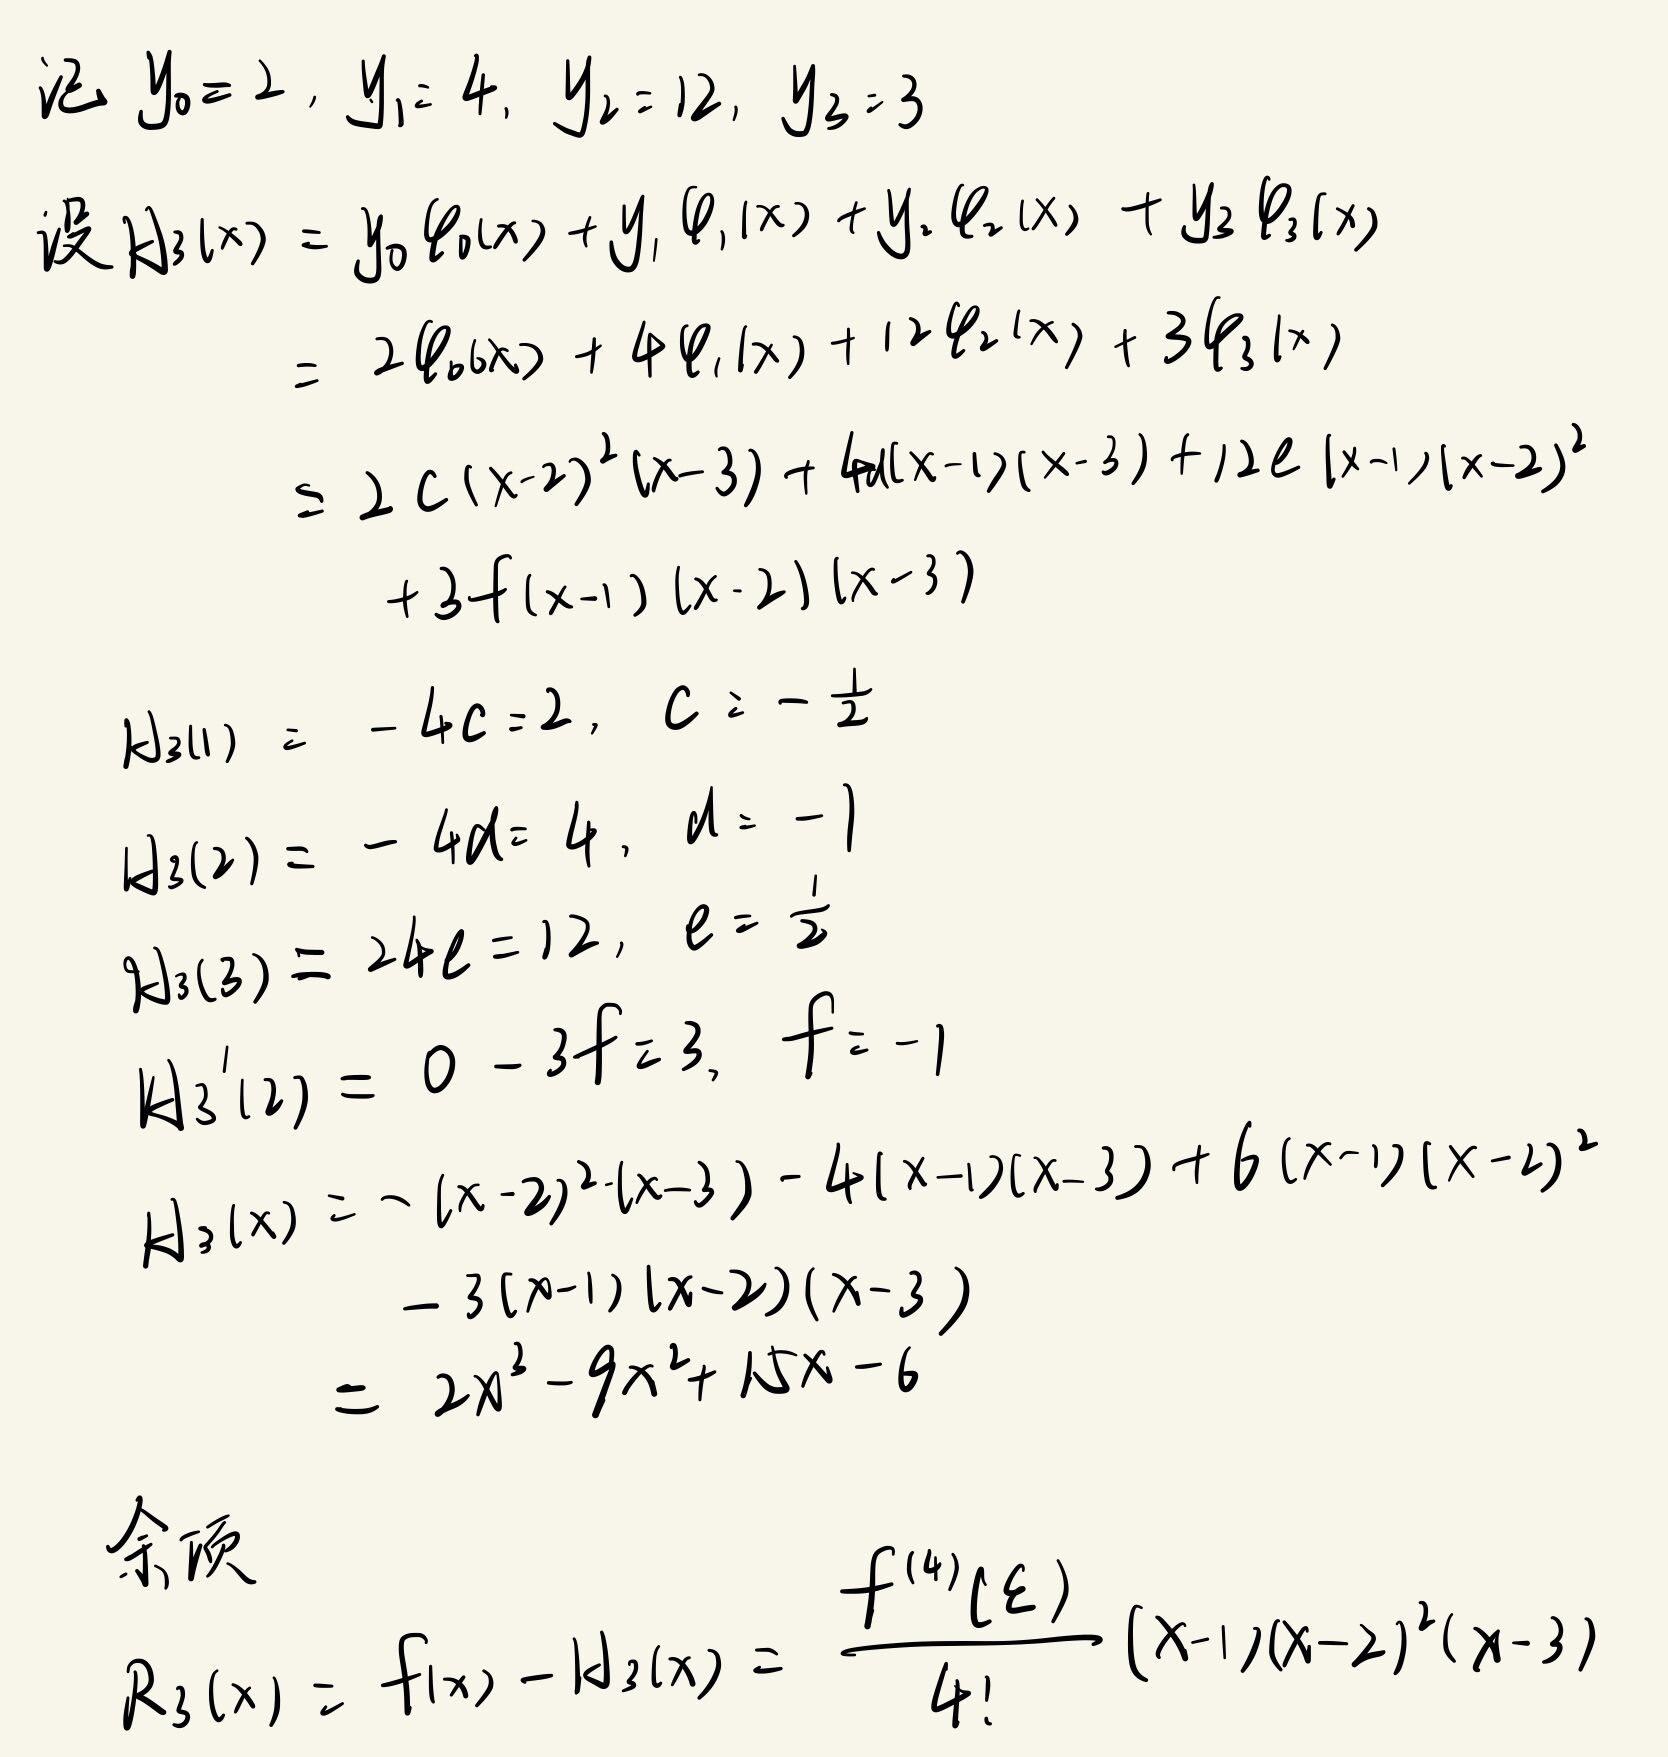 记 y₀=2, y₁=4, y₂=12, y₃=3
设 H₃(x) = y₀φ₀(x) + y₁φ₁(x) + y₂φ₂(x) + y₃φ₃(x)
= 2φ₀(x) + 4φ₁(x) + 12φ₂(x) + 3φ₃(x)
= 2c(x-2)²(x-3) + 4d(x-1)(x-3) + 12e(x-1)(x-2)²
+3f(x-1)(x-2)(x-3)
H₃(1) = -4c=2, c = -1/2
H₃(2) = -4d=4, d = -1
H₃(3) = 24e=12, e = 1/2
H₃'(2) = 0 - 3f=3, f = -1
H₃(x) = -(x-2)²·(x-3) - 4(x-1)(x-3) + 6(x-1)(x-2)²
- 3(x-1)(x-2)(x-3)
= 2x³ - 9x² + 15x - 6
余项
R₃(x) = f(x) - H₃(x) = f⁽⁴⁾(ε)/4! (x-1)(x-2)²(x-3)